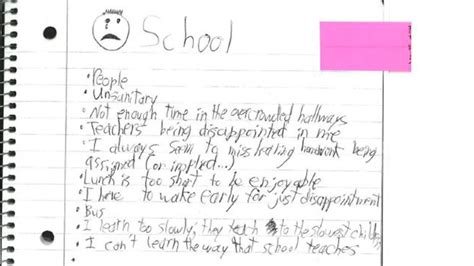 School
• People
• Unsanitary
• Not enough time in the overcrowded hallways
• Teachers being disappointed in me
• I always seem to miss hearing homework being
assigned (or implied...)
• Lunch is too short to be enjoyable
• I have to wake early for just disappointment
• Bus
• I learn too slowly; they teach to the slowest children
• I can't learn the way that school teaches